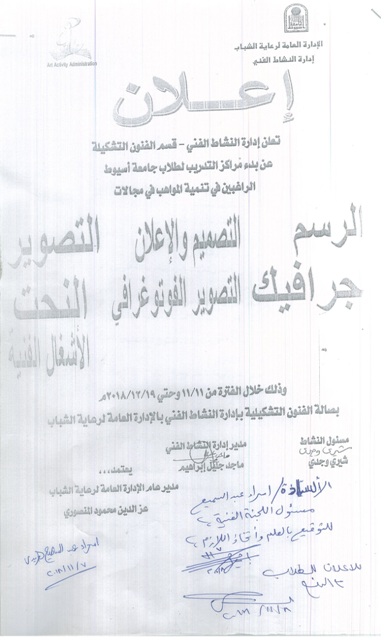 الإدارة العامة لرعاية الشباب
إدارة النشاط الفني
Art Activity Administration
إعـــلان
تعلن إدارة النشاط الفني - قسم الفنون التشكيلة
عن بدء مراكز التدريب لطلاب جامعة أسيوط
الراغبين في تنمية المواهب في مجالات
الرسم التصميم والإعلان التصوير
جرافيك التصوير الفوتوغرافي النحت
الأشغال الفنية
وذلك خلال الفترة من ١١/١١ وحتي ٢٠١٨/١٢/١٩م
بصالة الفنون التشكيلية بإدارة النشاط الفني بالإدارة العامة لرعاية الشباب
مسئول النشاط مدير إدارة النشاط الفني
شيري وجدي
شيري وجدي ماجد جليل إبراهيم
يعتمد،،،
مدير عام الإدارة العامة لرعاية الشباب
عز الدين محمود المنصوري
الأستاذة/ إسراء عبد السميع
مسئول اللجنة الفنية
للتوقيع بالعلم واتخاذ اللازم
للإعلان للطلاب